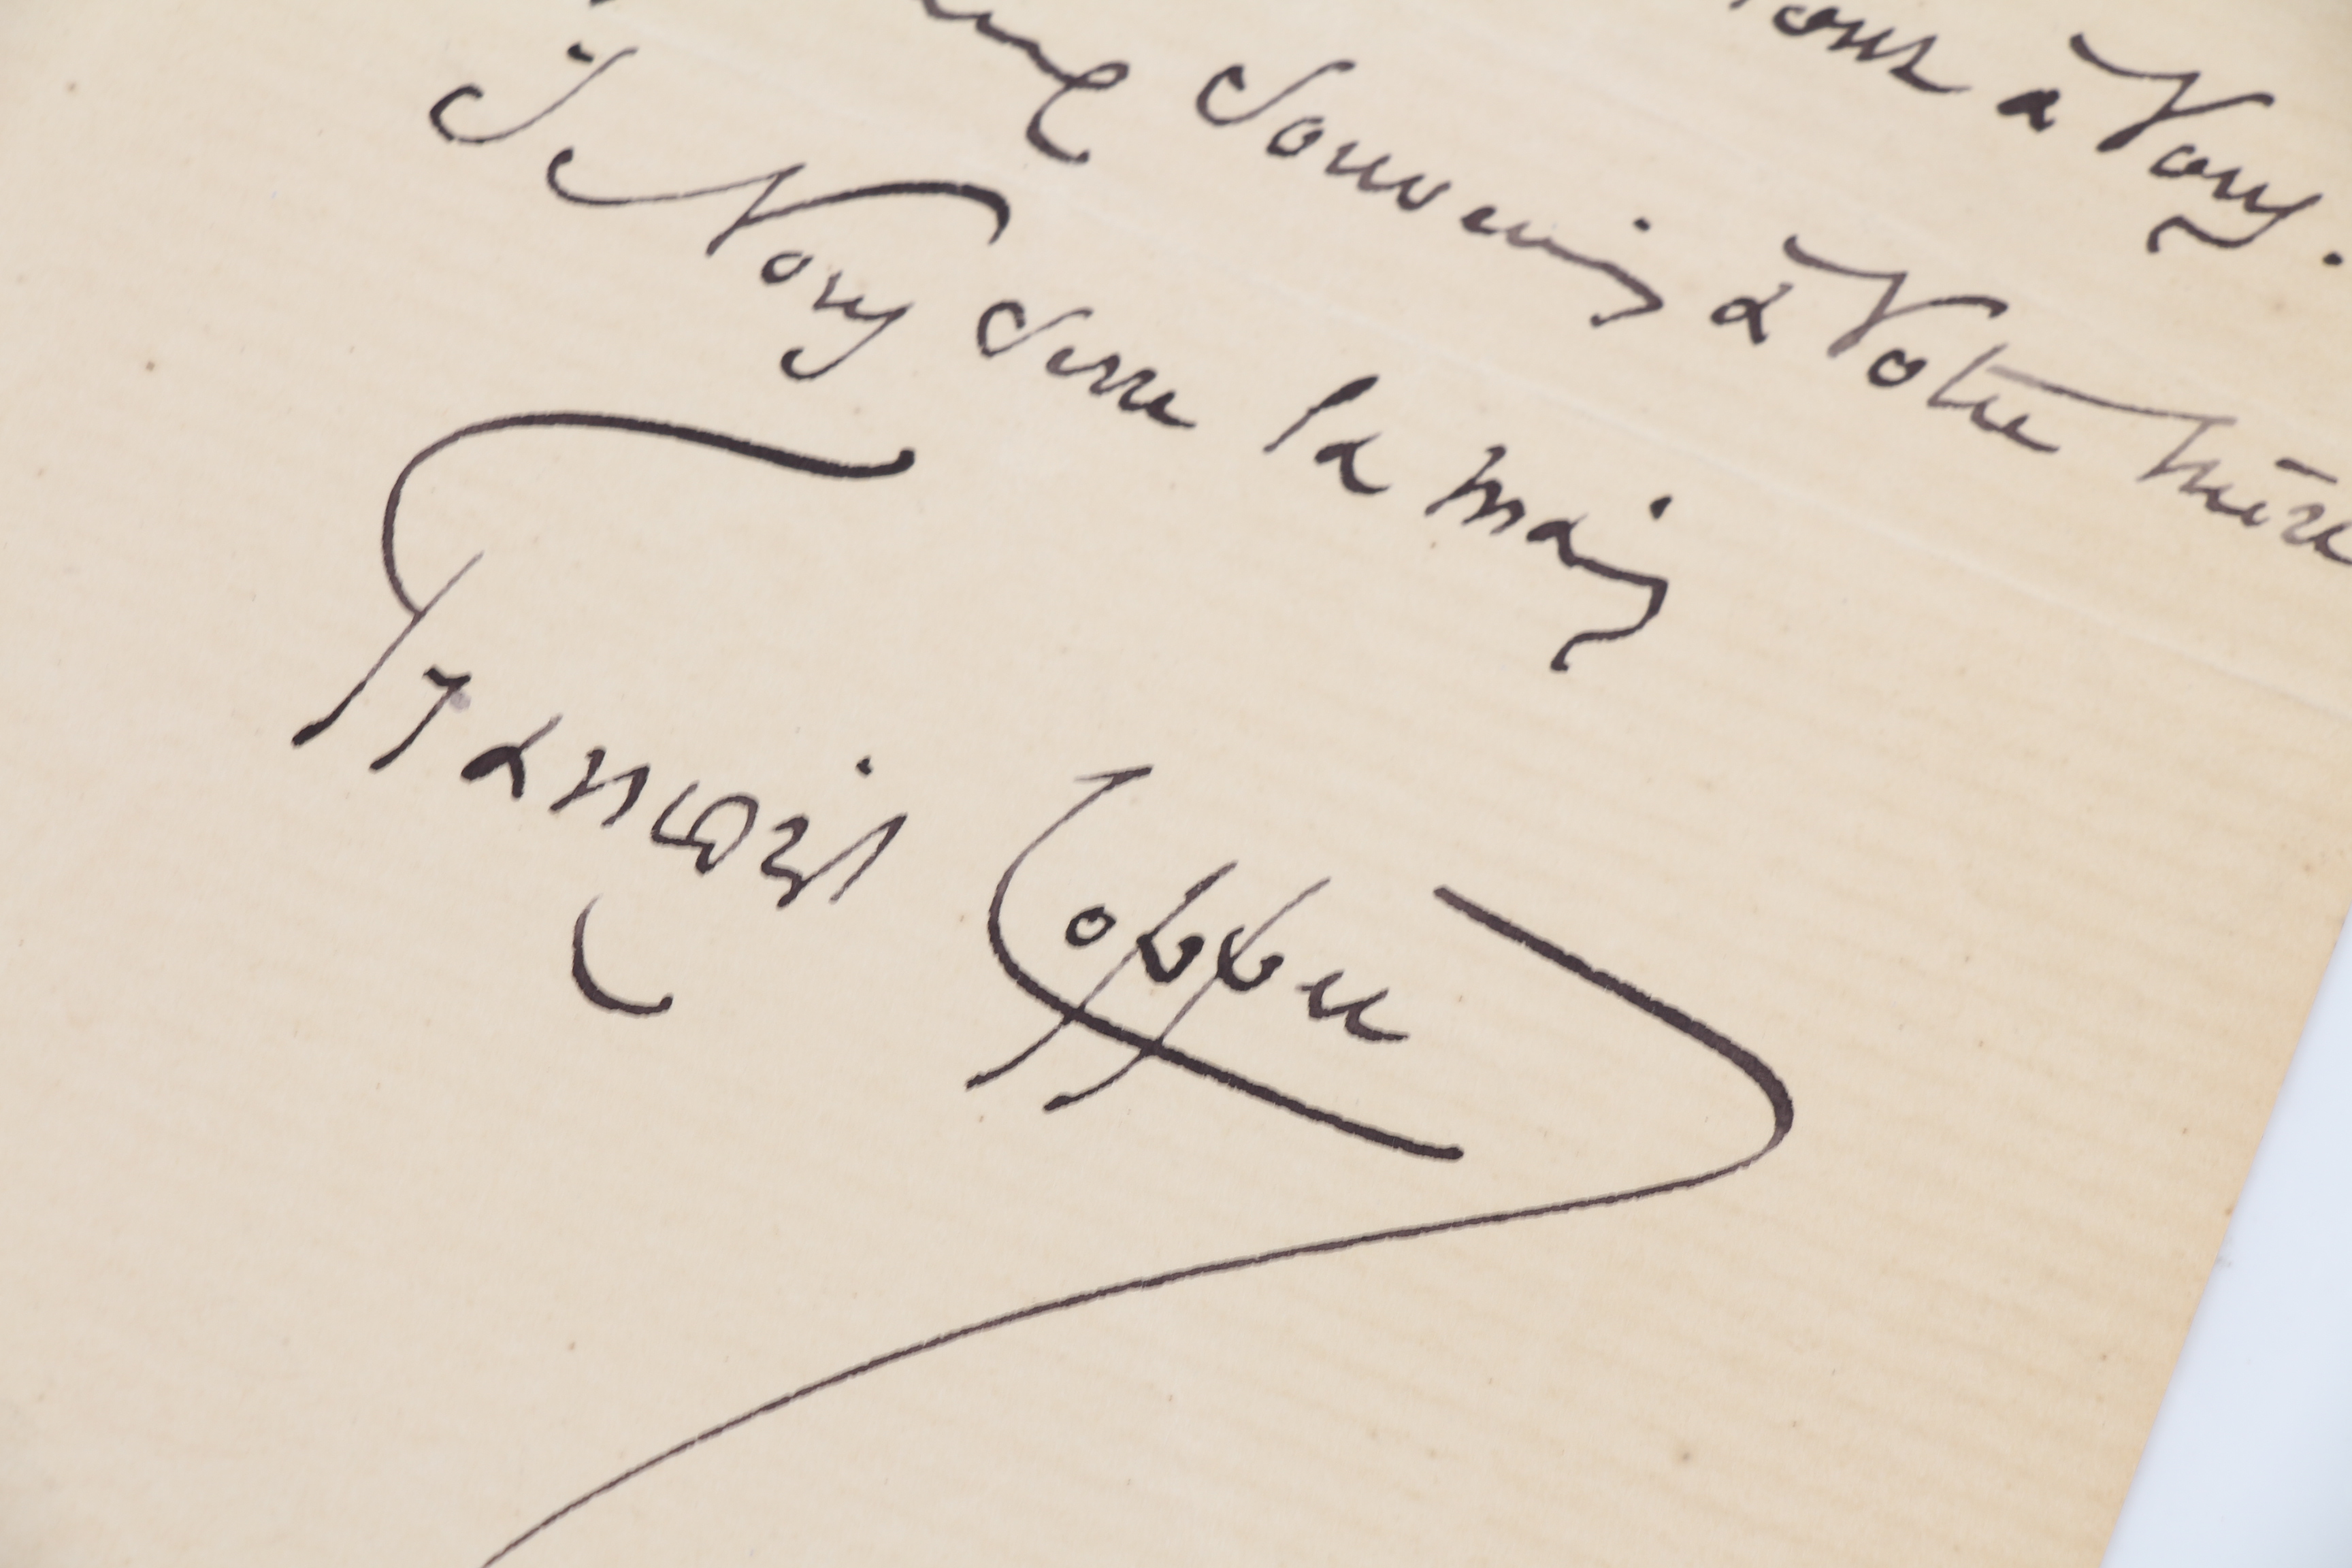 tous à vous.
souvenir à votre mère
Je vous serre la main
François Coppée